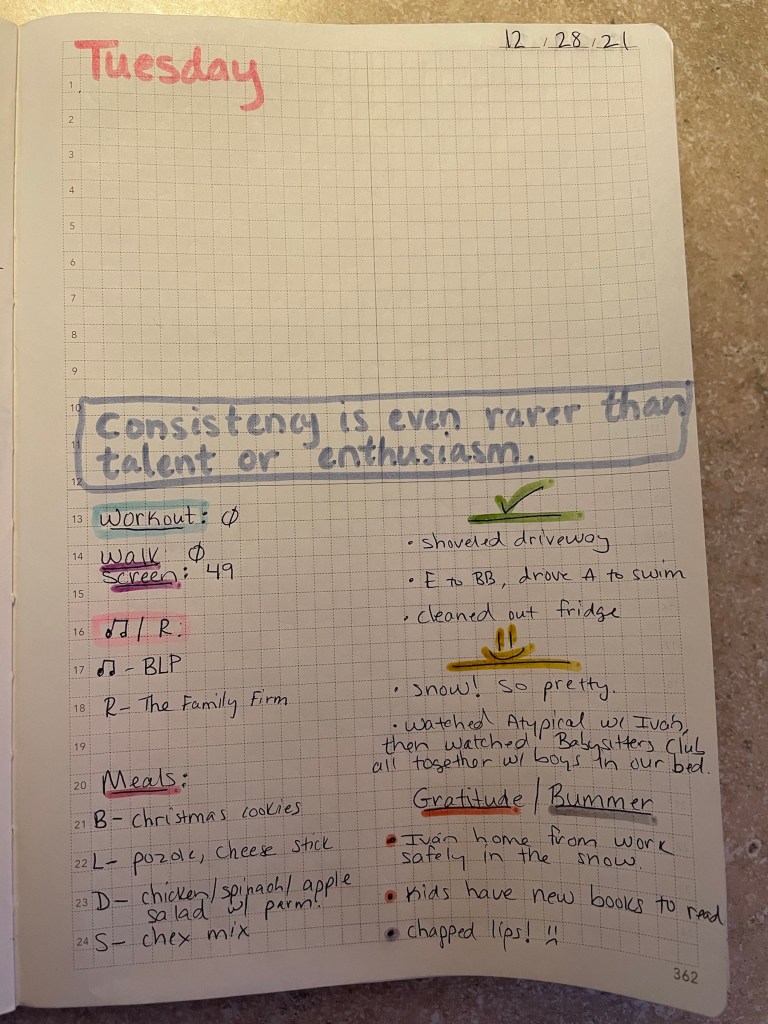 12 / 28 / 21
Tuesday
1
2
3
4
5
6
7
8
9
10
11
12
Consistency is even rarer than
talent or enthusiasm.
13
workout: ∅
14
walk: ∅
screen: 49
15
16
♫ / R:
17
♫ - BLP
18
R- The Family Firm
19
20
Meals:
21
B- Christmas cookies
22
L- pozole, cheese stick
23
D- chicken/spinach/apple
salad w/ parm!
24
S- chex mix
✓
• shoveled driveway
• E to BB, drove A to swim
• cleaned out fridge
• snow! so pretty.
• watched Atypical w/ Iván,
then watched Babysitters Club
all together w/ boys in our bed.
Gratitude / Bummer
• Iván home from work
safely in the snow.
• Kids have new books to read
• chapped lips!
362